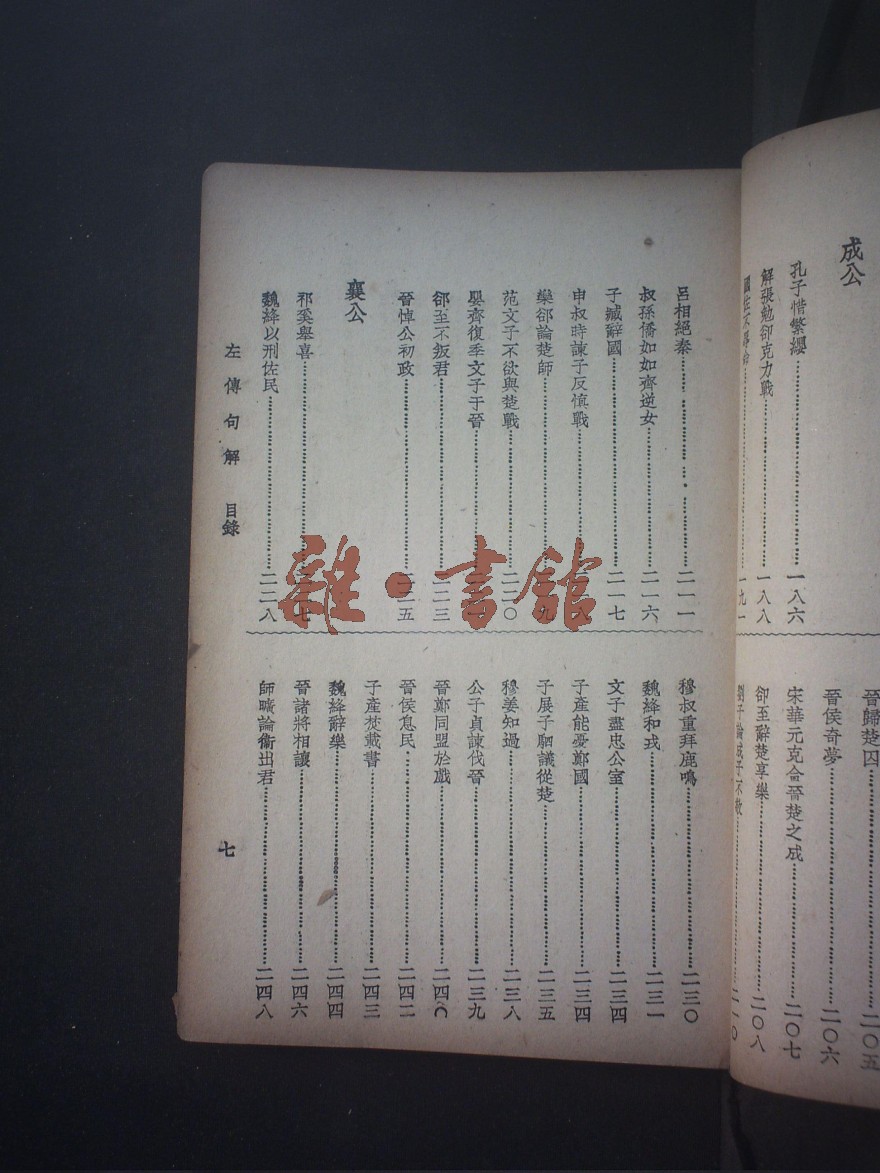 成公
孔子惜繁纓……一八六
解張勉卻克力戰……一八八
晉歸楚囚……二〇五
晉侯奇夢……二〇六
宋華元克合晉楚之成……二〇七
卻至辭楚享樂……二〇八
劉子論成子不敬……二一〇
呂相絕秦……二一一
叔孫僑如如齊逆女……二一六
子臧辭國……二一七
申叔時諫子反慎戰
欒郤論楚師
范文子不欲與楚戰……二二〇
嬰齊復季文子于晉
郤至不叛君……二二三
晉悼公初政……二二五
襄公
祁奚舉善
魏絳以刑佐民……二二八
穆叔重拜鹿鳴……二三〇
魏絳和戎……二三一
文子盡忠公室……二三四
子產能憂鄭國……二三四
子展子駟議從楚……二三五
穆姜知過……二三八
公子貞諫伐晉……二三九
晉鄭同盟於戲……二四〇
晉侯息民……二四二
子產焚載書……二四三
魏絳辭樂……二四四
晉諸將相讓……二四六
師曠論衞出君……二四八
左傳句解 目錄
七
雜·書館